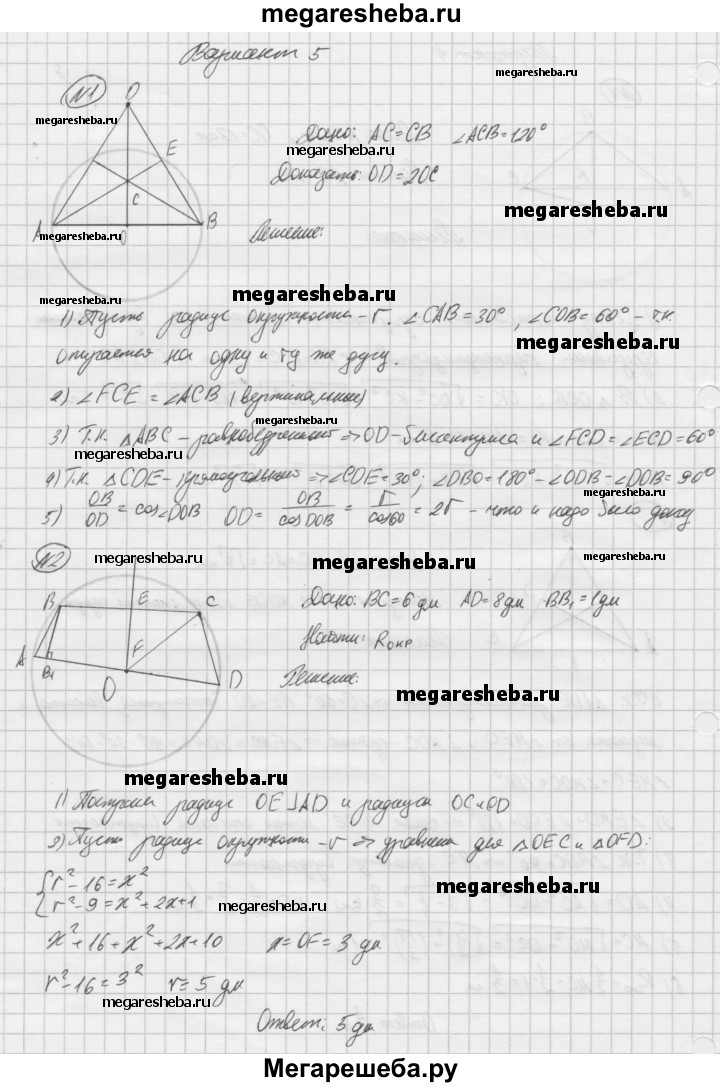 megaresheba.ru
Вариант 5
megaresheba.ru
№1
O
megaresheba.ru
E
Дано: AC=CB ∠ACB=120°
megaresheba.ru
Доказать: OD=2OC
C
megaresheba.ru
A
B
O
megaresheba.ru
Решение:
megaresheba.ru
megaresheba.ru
1) Пусть радиус окружности - r. ∠CAB=30°, ∠COB=60° - т.к.
megaresheba.ru
опирается на одну и ту же дугу.
2) ∠FCE = ∠ACB (вертикальные)
megaresheba.ru
3) Т.к. △ABC - равнобедренный ⇒ OD - биссектриса и ∠FCD=∠ECD=60°
4) Т.к. △CDE - прямоугольный ⇒ ∠CDE=30°; ∠DBO=180°-∠ODB-∠DOB=90°
megaresheba.ru
5) OB/OD = cos∠DOB OD = OB/cosDOB = r/cos60 = 2r - что и надо было доказ
№2
megaresheba.ru
megaresheba.ru
megaresheba.ru
B
E
C
Дано: BC=6 дм AD=8 дм BB₁=1 дм
A
B₁
F
O
D
Найти: Rокр
Решение:
megaresheba.ru
megaresheba.ru
1) Построим радиус OE⊥AD и радиусы OC и OD
2) Пусть радиус окружности - r ⇒ уравнения для △OEC и △OFD:
{r²-16=x²
megaresheba.ru
r²-9=x²+2x+1
megaresheba.ru
x²+16+x²+2x+10 x=OF=3 дм
r²-16=3² r=5 дм
megaresheba.ru
Ответ: 5 дм.
Мегарешеба.ру